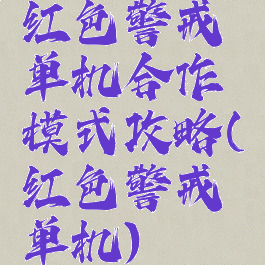 红色警戒
单机合作
模式攻略(
红色警戒
单机)